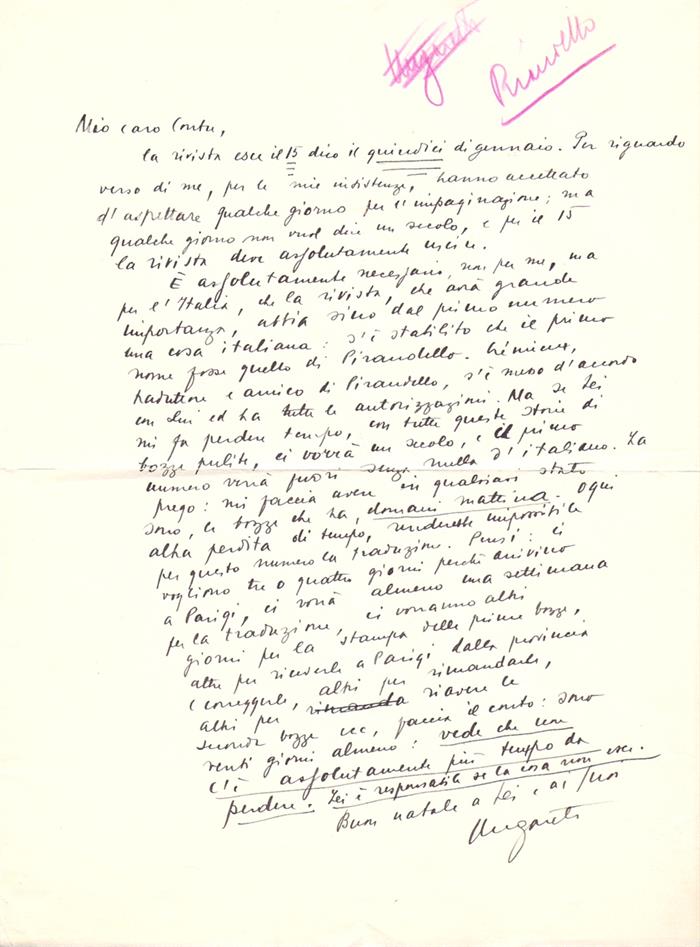 Ungaretti
Pirandello
Mio caro Conte,
la rivista esce il 15 dico il quindici di gennaio. Per riguardo
verso di me, per le mie insistenze, hanno accettato
d'aspettare qualche giorno per l'impaginazione; ma
qualche giorno non vuol dire un secolo, e per il 15
la rivista deve assolutamente uscire.
È assolutamente necessario, non per me, ma
per l'Italia, che la rivista, che avrà grande
importanza, abbia sino dal primo numero
una cosa italiana: s'è stabilito che il primo
nome fosse quello di Pirandello. Crémieux,
traduttore e amico di Pirandello, s'è messo d'accordo
con Lui ed ha tutte le autorizzazioni. Ma se Lei
mi fa perdere tempo, con tutte queste storie di
bozze pulite, ci vorrà un secolo, e il primo
numero verrà fuori senza nulla d'italiano. La
prego: mi faccia avere in qualsiasi stato
sono, le bozze che ha, domani mattina. Ogni
altra perdita di tempo, renderebbe impossibile
per questo numero la traduzione. Pensi: ci
vogliono tre o quattro giorni perché arrivino
a Parigi, ci vorrà almeno una settimana
per la traduzione, ci vorranno altri
giorni per la stampa delle prime bozze,
altri per riceverle a Parigi dalla provincia
e correggerle, altri per rimandarle,
altri per riavere le
seconde bozze ecc, faccia il conto: sono
venti giorni almeno: vede che non
c'è assolutamente più tempo da
perdere. Lei è responsabile se la cosa non esce.
Buon natale a Lei e ai Suoi
Ungaretti